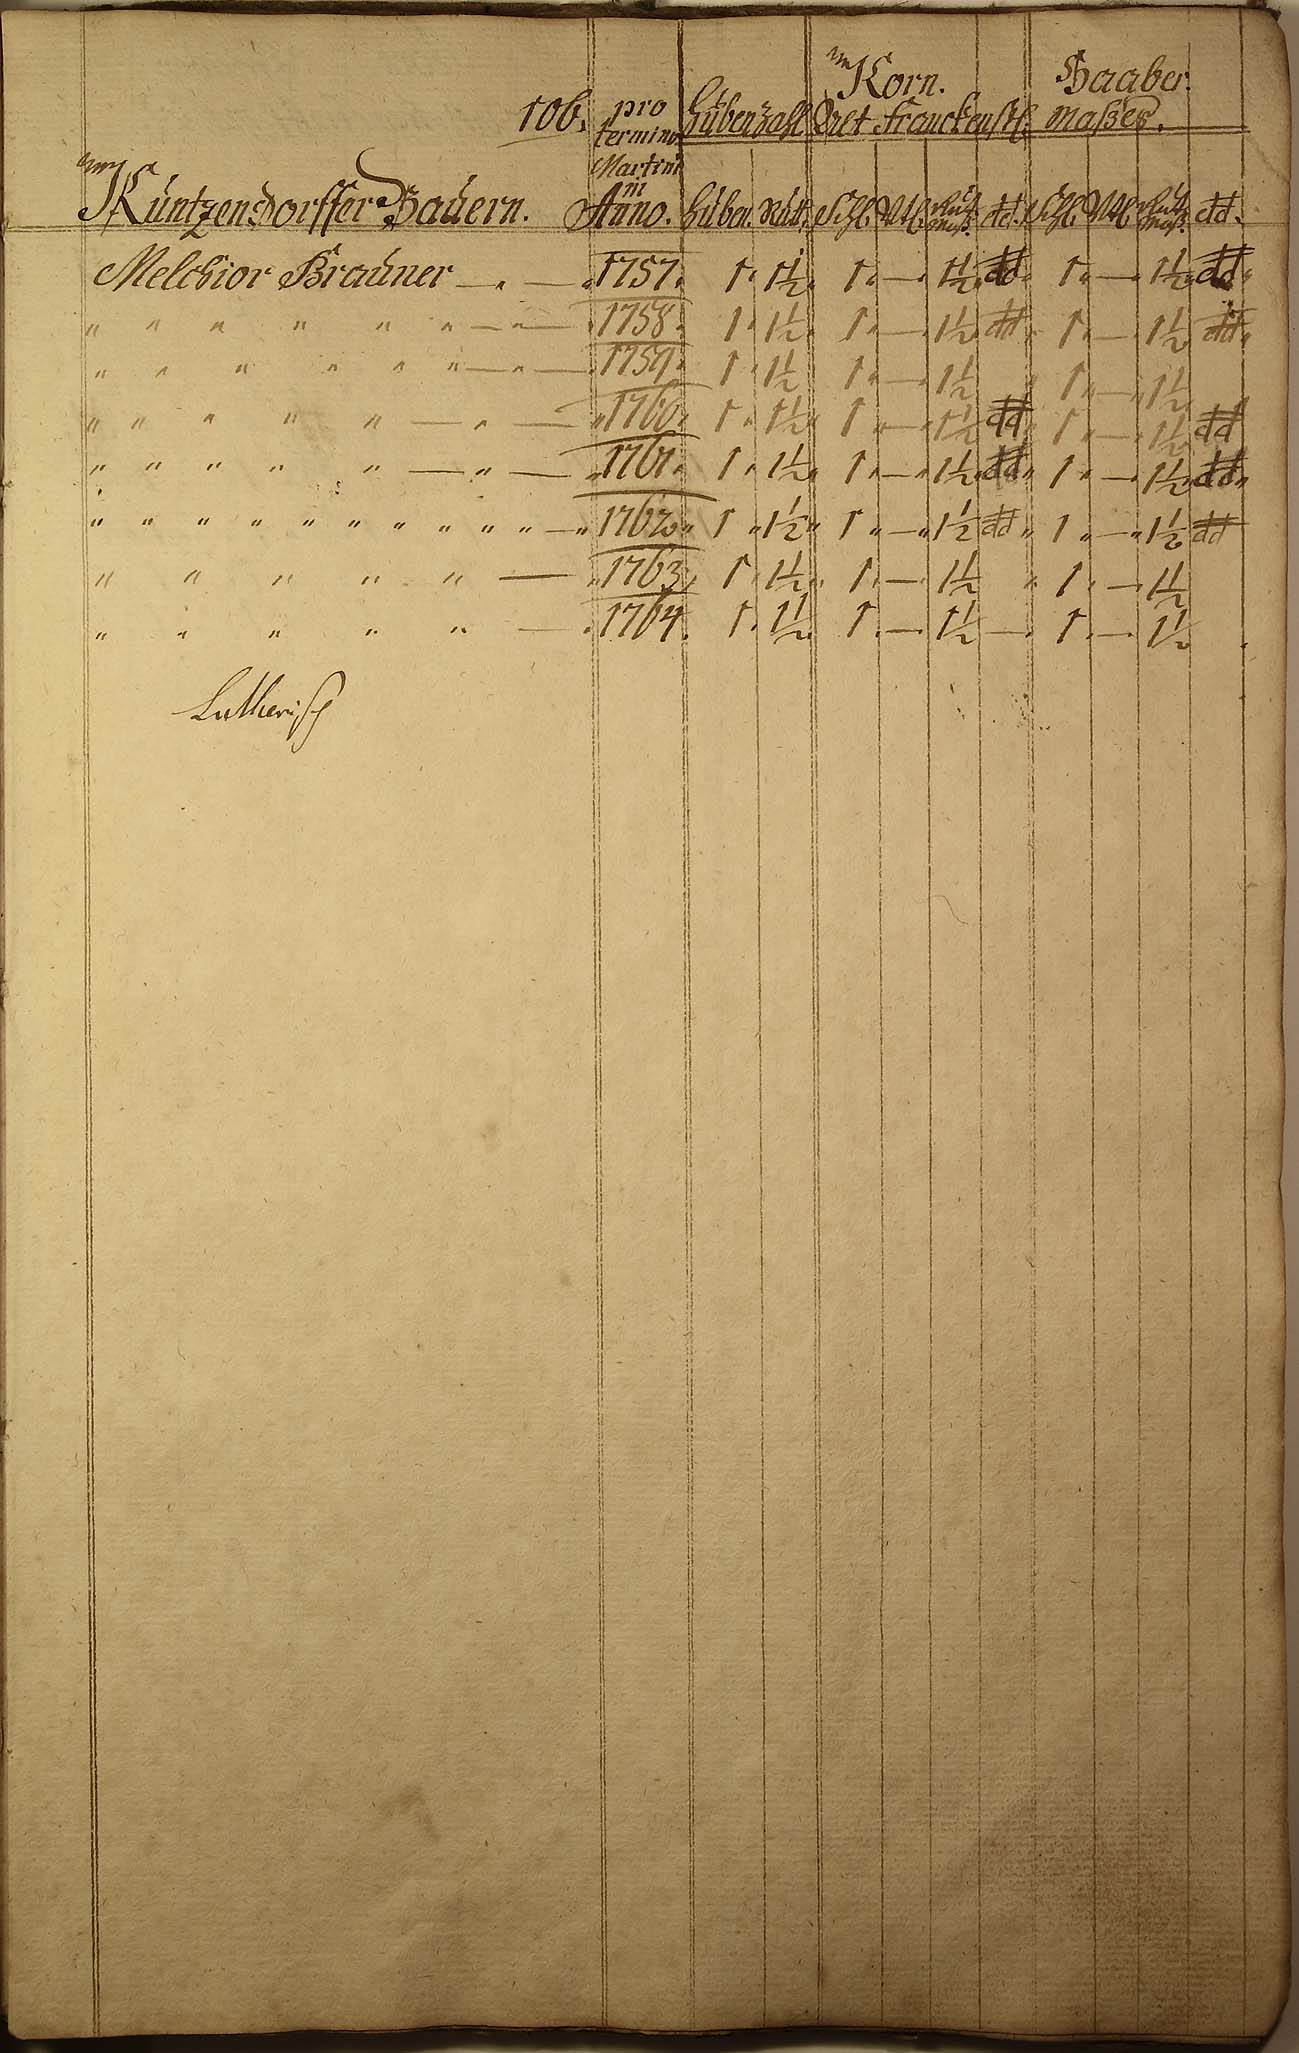 Korn. Haaber.
106. pro Hübenzahl Bret Franckenst. Maßes.
termino
Martini
in
Küntzendorffer Bauern. Anno. Hüben. Rutt. Schl. Vtl. dd. Schl. Vtl. dd.
Melchior Brauner — „ — „ 1757. 1 „ 1½ „ 1 „ — „ 1½ „ dd „ 1 „ — „ 1½ „ dd „
„ „ „ „ „ „ — „ — „ 1758. 1 „ 1½ „ 1 „ — „ 1½ „ dd „ 1 „ — „ 1½ „ dd „
„ „ „ „ „ „ — „ — „ 1759. 1 „ 1½ 1 „ — „ 1½ „ 1 „ — „ 1½
„ „ „ „ „ — „ — „ 1760. 1 „ 1½ „ 1 „ — „ 1½ dd „ 1 „ — „ 1½ dd
„ „ „ „ „ — „ — „ 1761. 1 „ 1½ „ 1 „ — „ 1½ „ dd „ 1 „ — „ 1½ „ dd „
„ „ „ „ „ „ „ „ „ „ „ — „ 1762 „ 1 „ 1½ „ 1 „ — „ 1½ dd „ 1 „ — „ 1½ dd
„ „ „ „ „ — „ 1763, 1 „ 1½ „ 1 „ — „ 1½ „ 1 „ — 1½
„ „ „ „ „ — „ 1764. 1 „ 1½ „ 1 „ — „ 1½ — „ 1 „ — „ 1½ „
Lutherisch